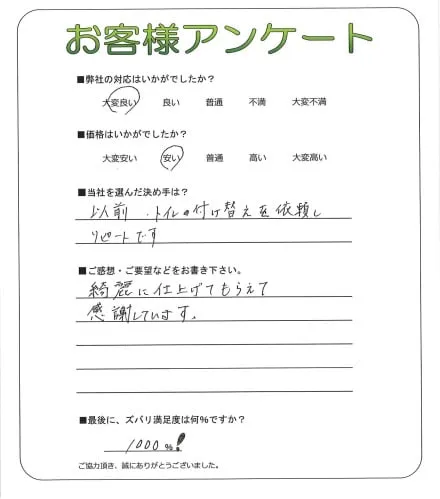 お客様アンケート
■弊社の対応はいかがでしたか?
大変良い 良い 普通 不満 大変不満
■価格はいかがでしたか?
大変安い 安い 普通 高い 大変高い
■当社を選んだ決め手は?
以前、トイレの付け替えを依頼し
リピートです
■ご感想・ご要望などをお書き下さい。
綺麗に仕上げてもらえて
感謝しています。
■最後に、ズバリ満足度は何%ですか?
1000%!
ご協力頂き、誠にありがとうございました。